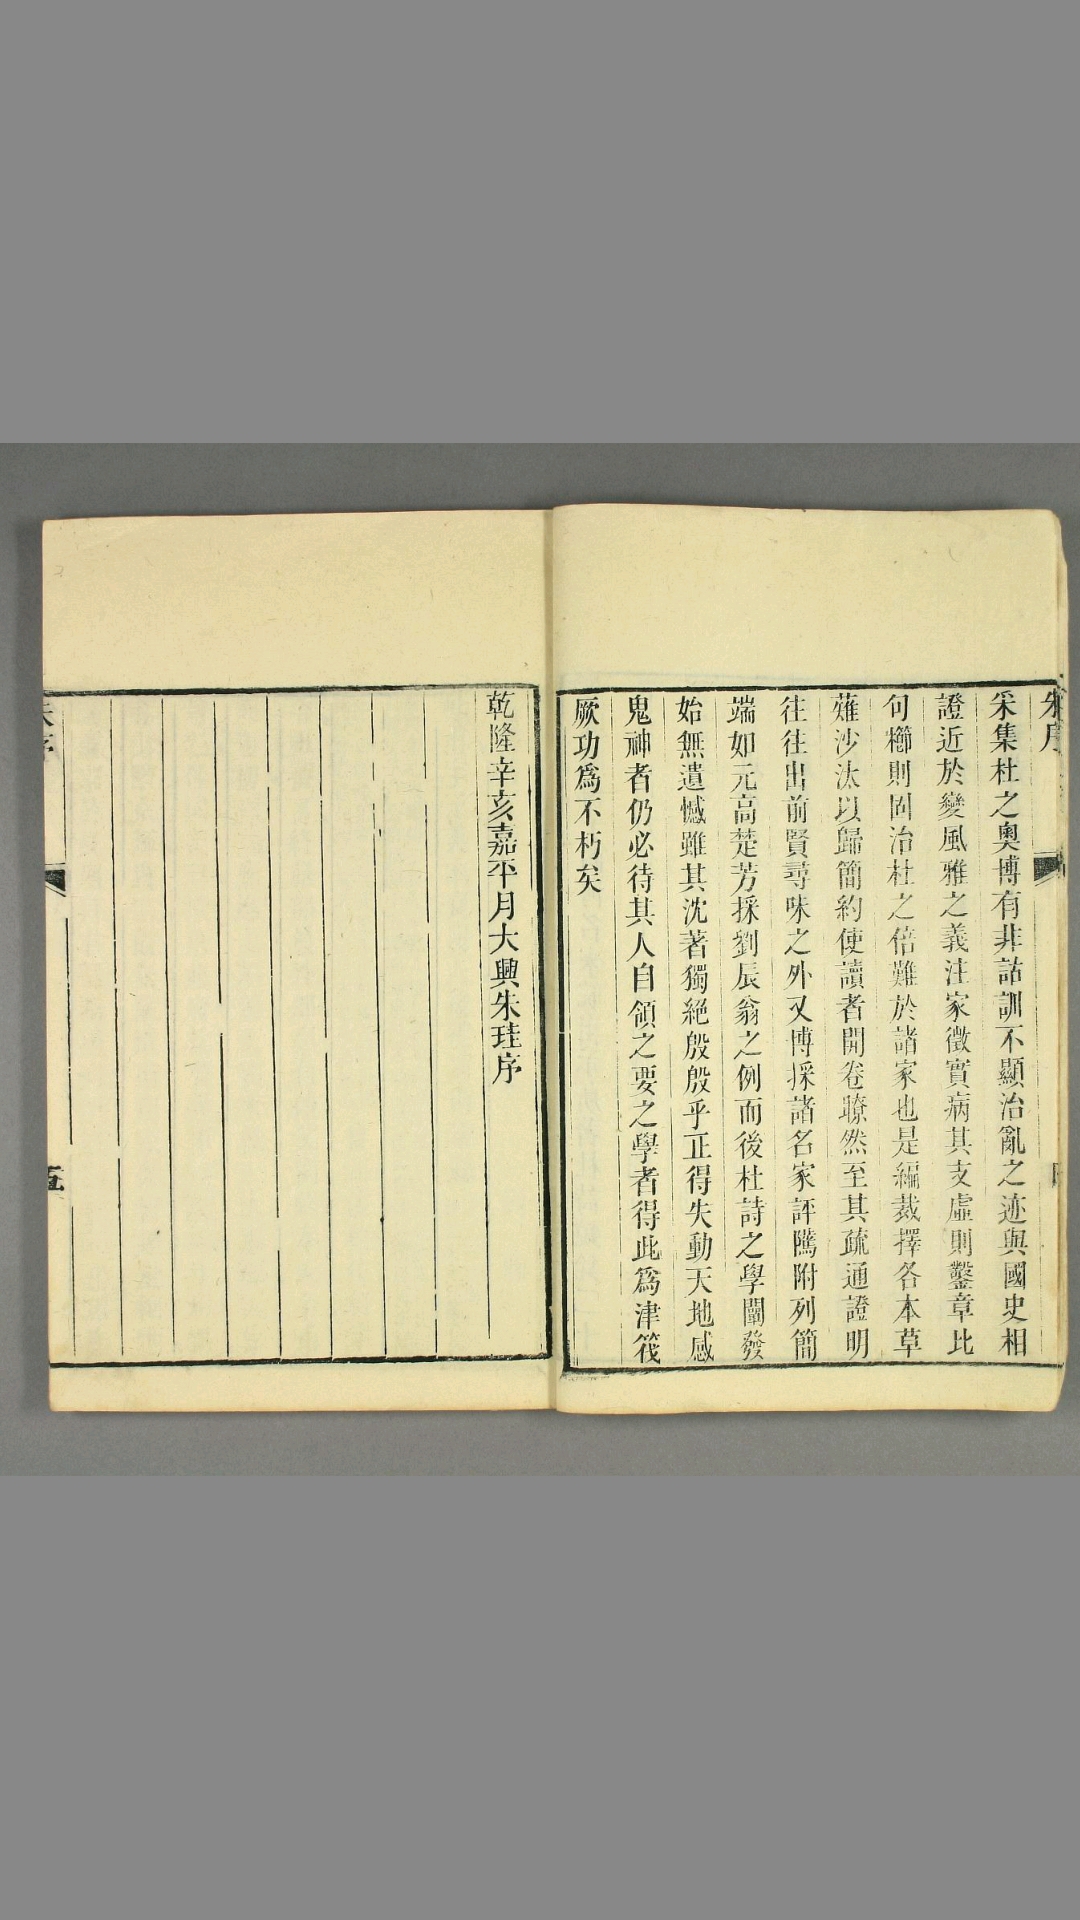 朱序
采集杜之奧博有非詁訓不顯治亂之迹與國史相
證近於變風雅之義注家徵實病其支虛則鑿章比
句櫛則固治杜之倍難於諸家也是編裁擇各本草
薙沙汰以歸簡約使讀者開卷瞭然至其疏通證明
往往出前賢尋味之外又博採諸名家評隲附列簡
端如元高楚芳採劉辰翁之例而後杜詩之學闡發
始無遺憾雖其沈著獨絕殷殷乎正得失動天地感
鬼神者仍必待其人自領之要之學者得此爲津筏
厥功爲不朽矣
乾隆辛亥嘉平月大興朱珪序
朱序
五